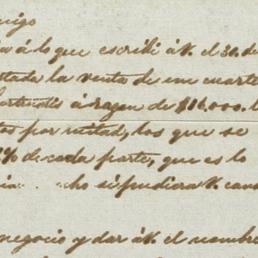 migo
a á lo que escribi á V. el 31. de
tada la venta de un cuarto
á razon de $16.000. l
tos por mitad, los que se
2% de cada parte, que es lo
cho si pudiera V. con
negocio y dar á V. el nombre